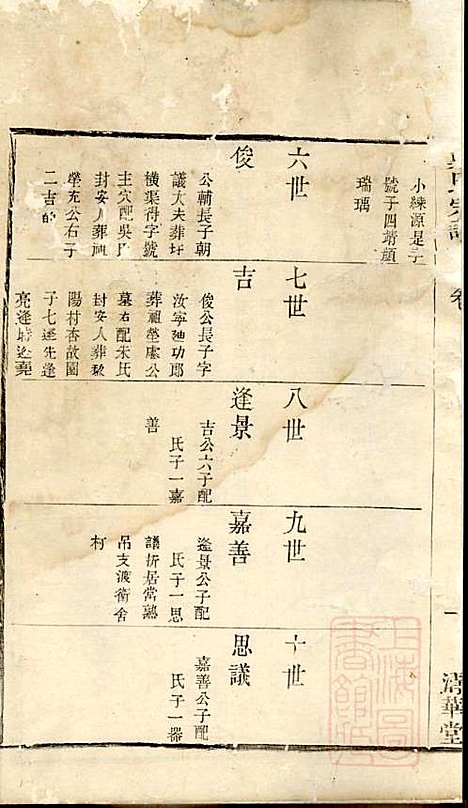 小練源是子
號子四靖頤
瑞瑀
六世
俊
公輔長子朝
議大夫葬圩
橫渠得字號
主穴配吳氏
封安人葬祠
塋充公右子
二吉的
七世
吉
俊公長子字
汝寧廸功郎
葬祖塋處公
墓右配朱氏
封安人葬
陽村杏故園
子七逢先逢
亮逢時逢堯
八世
逢景
吉公六子配
氏子一嘉
善
九世
嘉善
逢景公子配
氏子一思
議折居常熟
吊支渡衛舍
村
十世
思議
嘉善公子配
氏子一器
宗譜
卷
一
清華堂
上海圖書館藏